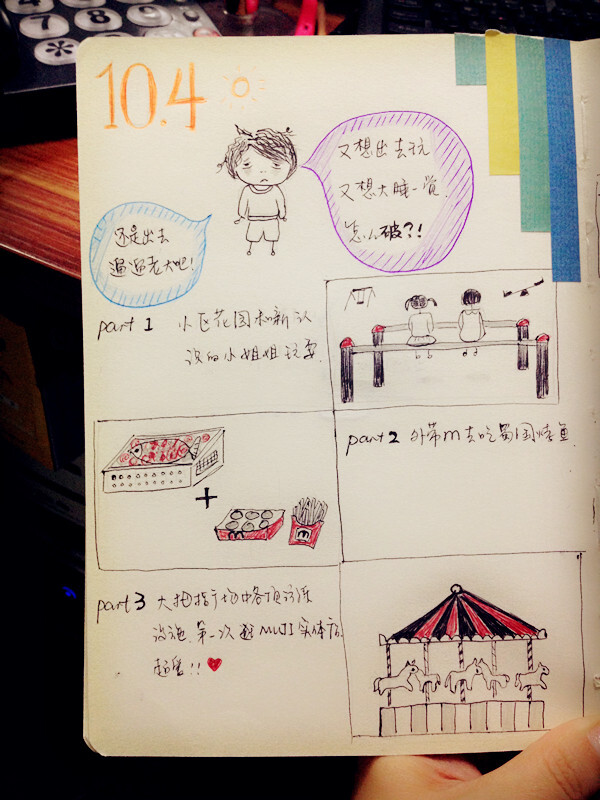 7 8 9
4 5 6
10.4
又想出去玩
又想大睡一觉.
怎么破?!
还是出去
逼逼老大吧!
part 1 小区花园和新认
识的小姐姐玩耍.
part 2 外带m去吃蜀国烤鱼.
m
part 3 大拇指广场中各项游乐
设施.第一次逛MUJI实体店
超爱!!